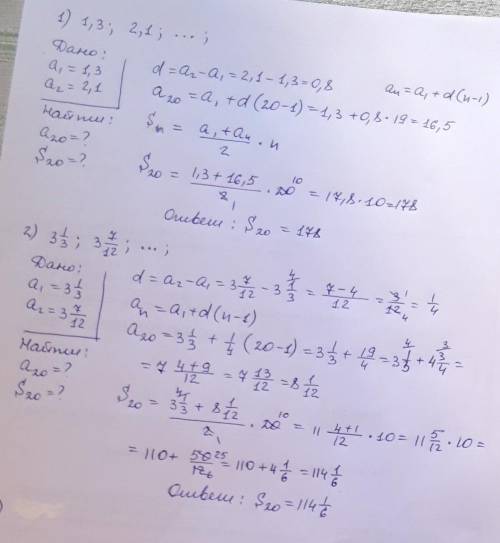 1) 1,3; 2,1; ...;
Дано:
a₁ = 1,3
a₂ = 2,1
Найти:
a₂₀ = ?
S₂₀ = ?
d = a₂ - a₁ = 2,1 - 1,3 = 0,8 aₙ = a₁ + d(n-1)
a₂₀ = a₁ + d(20-1) = 1,3 + 0,8 · 19 = 16,5
Sₙ = (a₁ + aₙ)/2 · n
S₂₀ = (1,3 + 16,5)/2 · 20 = 17,8 · 10 = 178
Ответ: S₂₀ = 178
2) 3 1/3; 3 7/12; ...;
Дано:
a₁ = 3 1/3
a₂ = 3 7/12
Найти:
a₂₀ = ?
S₂₀ = ?
d = a₂ - a₁ = 3 7/12 - 3 1/3 = (7-4)/12 = 3/12 = 1/4
aₙ = a₁ + d(n-1)
a₂₀ = 3 1/3 + 1/4 (20-1) = 3 1/3 + 19/4 = 3 1/3 + 4 3/4 =
= 7 (4+9)/12 = 7 13/12 = 8 1/12
S₂₀ = (3 1/3 + 8 1/12)/2 · 20 = 11 (4+1)/12 · 10 = 11 5/12 · 10 =
= 110 + 50/12 = 110 + 4 1/6 = 114 1/6
Ответ: S₂₀ = 114 1/6